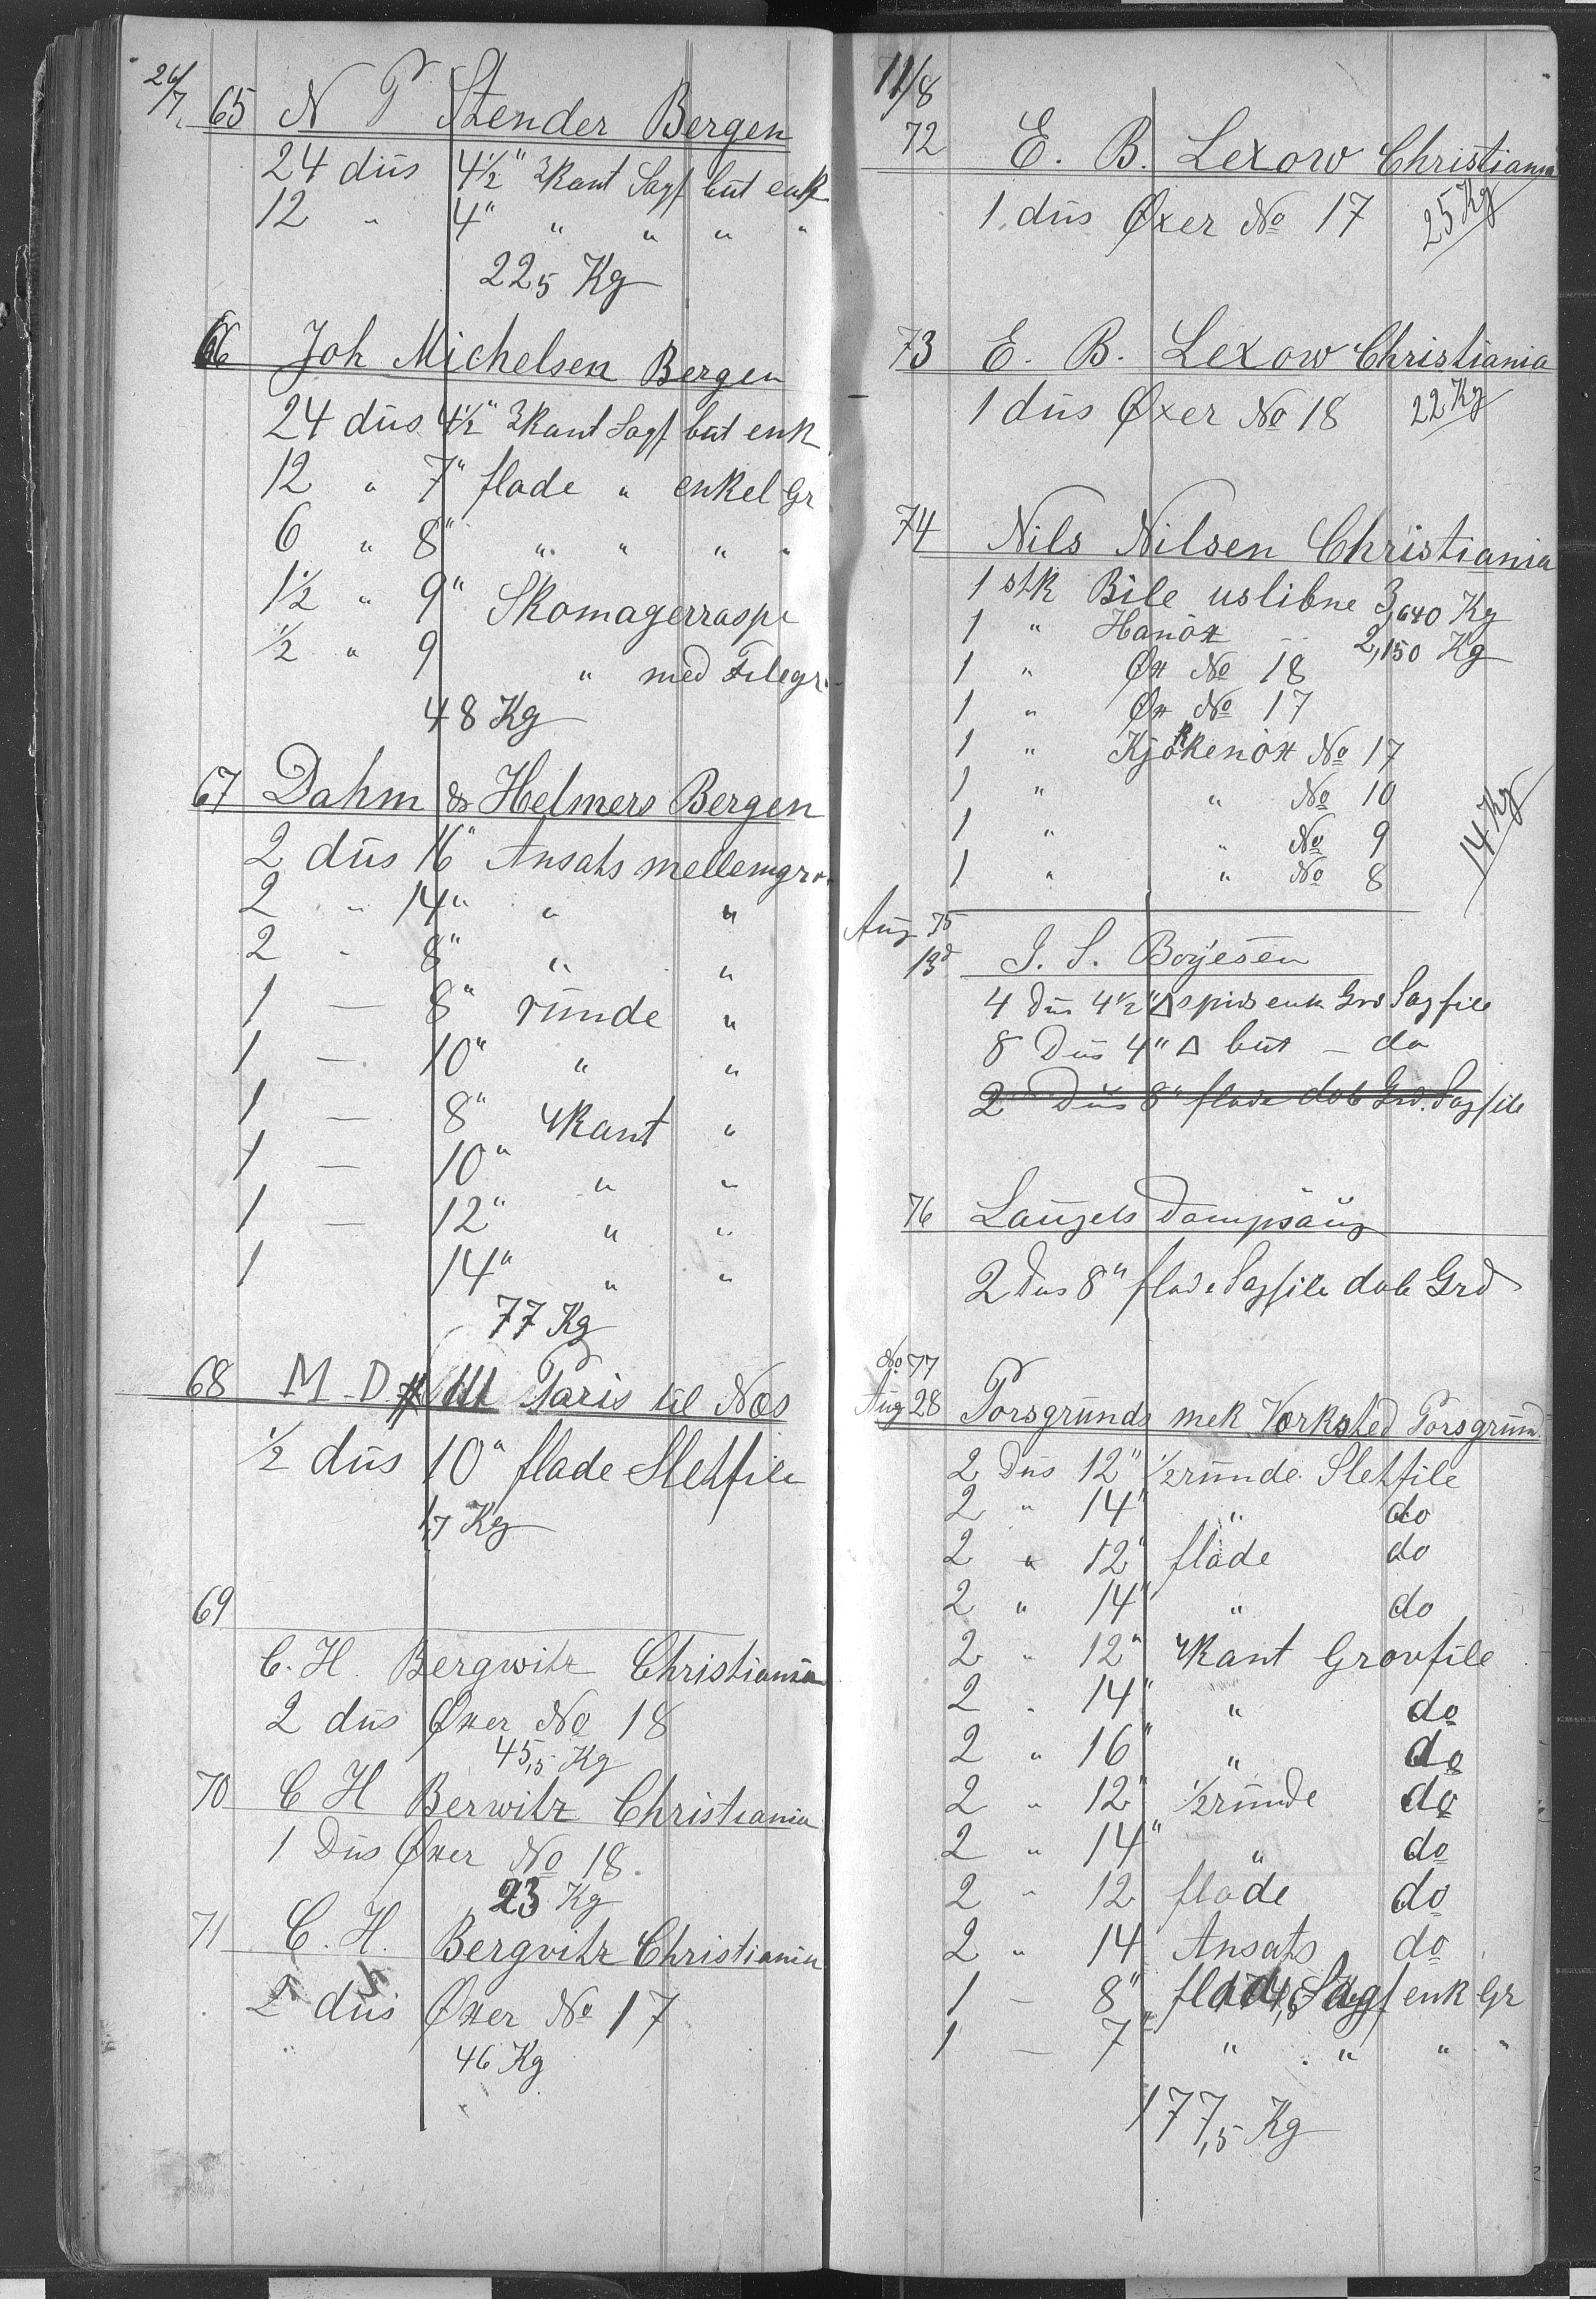 26/7 65 N P Stender Bergen
24 düs 4½" 3kant Sagf büt enk
12 " 4" " " " "
22,5 Kg
66 Joh Michelsen Bergen
24 düs 4½" 3kant Sagf büt enk
12 " 7" flade " enkel Gr
6 " 8" " " " "
1½ " 9" Skomagerraspe
½ " 9 " med Filegr.
48 Kg
67 Dahm & Helmers Bergen
2 düs 16" Ansats mellemgr.
2 " 14" " "
2 " 8" " "
1 — 8" runde "
1 — 10" " "
1 — 8" 4kant "
1 — 10" " "
1 — 12" " "
1 14" " "
77 Kg
68 M-D Paris til Næs
½ düs 10" flade Sletfile
1,7 Kg
69
C. H. Bergwitz Christiania
2 düs Øxer No 18
45,5 Kg
70 C H Berwitz Christiania
1 Düs Øxer No 18.
23 Kg
71 C. H. Bergvitz Christiania
2 düs Øxer No 17
46 Kg
11/8
72 E. B. Lexow Christiania
1 düs Øxer No 17 25 Kg
73 E. B. Lexow Christiania
1 düs Øxer No 18 22 Kg
74 Nils Nilsen Christiania
1 stk Bile uslibne 3,640 Kg
1 " Hanöx " 2,150 Kg
1 " Øx No 18
1 " Øx No 17
1 " Kjøkkenöx No 17
1 " " No 10
1 " " No 9
1 " " No 8
14 Kg
Aug 75
13d J. S. Börjesen
4 Düs 4½" △ spids enk Grd Sagfile
8 Düs 4" △ büt — do
2 Düs 8" flade dob Grd. Sagfile
76 Laugels Dampsaug
2 Dus 8" flade Sagfile dob Grd
No 77
Aug 28 Porsgrunds mek Værksted Porsgrund.
2 Düs 12" ½runde Sletfile
2 " 14" " do
2 " 12" flade do
2 " 14" " do
2 " 12" 4kant Grovfile
2 " 14" " do
2 " 16" " do
2 " 12" ½runde do
2 " 14" " do
2 " 12 flade do
2 " 14 Ansats do
1 — 8" flade Sagf enk Gr
1 — 7" " " " "
177,5 Kg